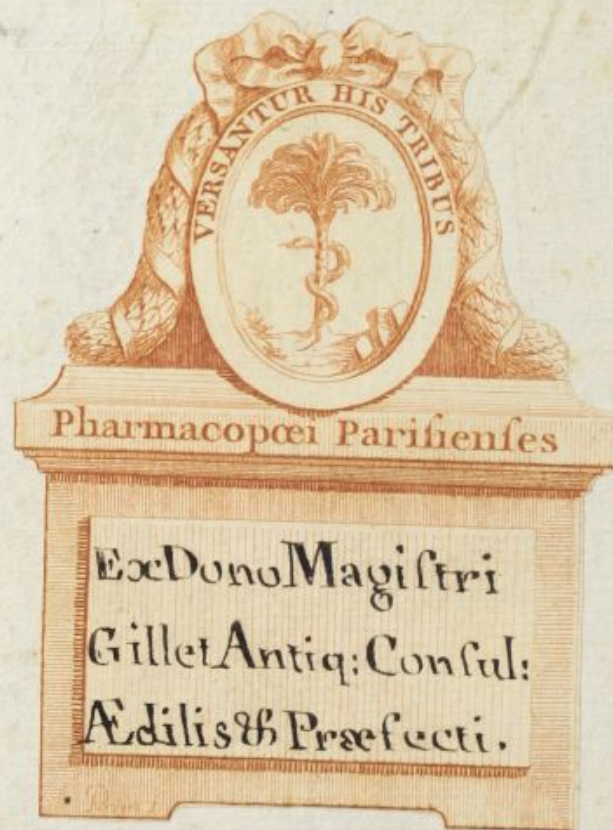 VERSANTUR HIS TRIBUS
Pharmacopœi Pariſienſes
Ex Dono Magiſtri
Gillet Antiq: Conſul:
Ædilis & Præfecti.